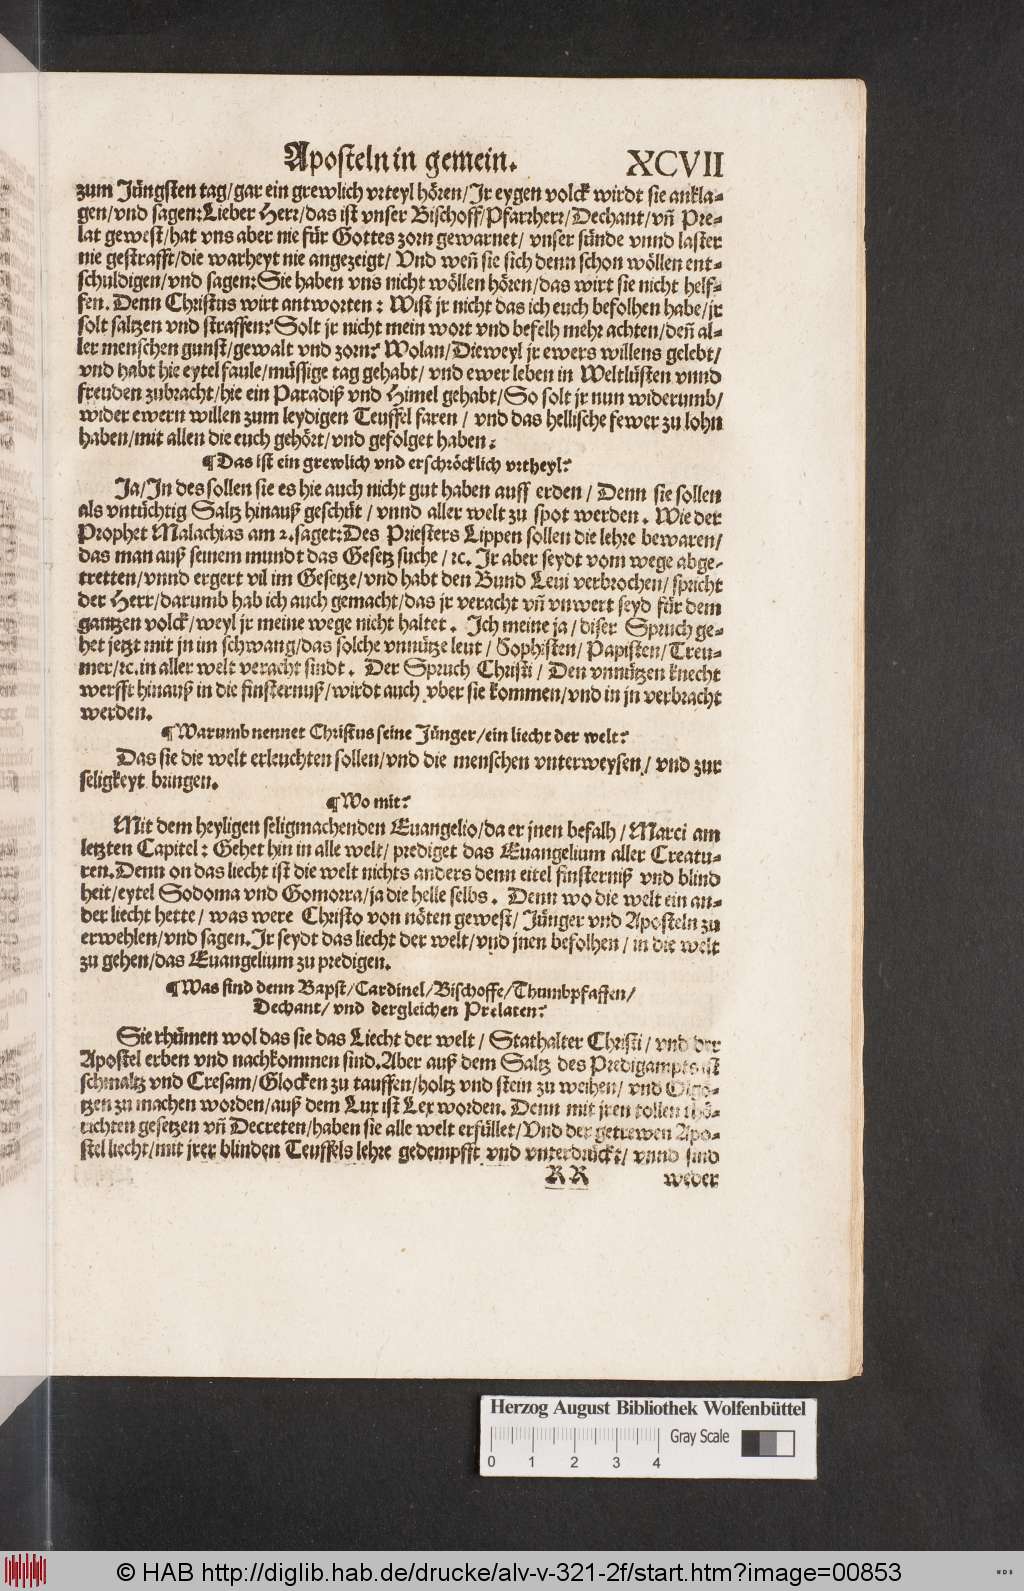 Aposteln in gemein. XCVII
zum Jüngsten tag/gar ein grewlich vrteyl hören/Jr eygen volck wirdt sie ankla-
gen/vnd sagen:Lieber Herr/das ist vnser Bischoff/Pfarrherr/Dechant/vñ Pre-
lat gewest/hat vns aber nie für Gottes zorn gewarnet/ vnser sünde vnnd laster
nie gestrafft/die warheyt nie angezeigt/ Vnd weñ sie sich denn schon wöllen ent-
schuldigen/vnd sagen:Sie haben vns nicht wöllen hören/das wirt sie nicht helf-
fen. Denn Christus wirt antworten : Wist jr nicht das ich euch befolhen habe/jr
solt saltzen vnd straffen? Solt jr nicht mein wort vnd befelh mehr achten/deñ al-
ler menschen gunst/gewalt vnd zorn? Wolan/Dieweyl jr ewers willens gelebt/
vnd habt hie eytel faule/müssige tag gehabt/ vnd ewer leben in Weltlüsten vnnd
freuden zubracht/hie ein Paradiß vnd Himel gehabt/So solt jr nun widerumb/
wider ewern willen zum leydigen Teuffel faren / vnd das hellische fewer zu lohn
haben/mit allen die euch gehört/vnd gefolget haben.
¶Das ist ein grewlich vnd erschröcklich vrtheyl?
Ja/In des sollen sie es hie auch nicht gut haben auff erden / Denn sie sollen
als vntüchtig Saltz hinauß geschüt / vnnd aller welt zu spot werden. Wie der
Prophet Malachias am 2.saget:Des Priesters Lippen sollen die lehre bewaren/
das man auß seinem mundt das Gesetz suche /ꝛc. Jr aber seydt vom wege abge-
tretten/vnnd ergert vil im Gesetze/vnd habt den Bund Leui verbrochen/ spricht
der Herr/darumb hab ich auch gemacht/das jr veracht vñ vnwert seyd für dem
gantzen volck/weyl jr meine wege nicht haltet . Ich meine ja / diser Spruch ge-
het jetzt mit jn im schwang/das solche vnnütze leut / Sophisten/ Papisten/Treu-
mer/ꝛc.in aller welt veracht sindt . Der Spruch Christi / Den vnnützen knecht
werfft hinauß in die finsternuß/wirdt auch vber sie kommen/vnd in jn verbracht
werden.
¶Warumb nennet Christus seine Jünger/ein liecht der welt?
Das sie die welt erleuchten sollen/vnd die menschen vnterweysen/ vnd zur
seligkeyt bringen.
¶Wo mit?
Mit dem heyligen seligmachenden Euangelio/da er jnen befalh / Marci am
letzten Capitel : Gehet hin in alle welt/ prediget das Euangelium aller Creatu-
ren.Denn on das liecht ist die welt nichts anders denn eitel finsterniß vnd blind
heit/eytel Sodoma vnd Gomorra/ja die helle selbs . Denn wo die welt ein an-
der liecht hette / was were Christo von nöten gewest/ Jünger vnd Aposteln zu
erwehlen/vnd sagen.Jr seydt das liecht der welt/vnd jnen befolhen / in die welt
zu gehen/das Euangelium zu predigen.
¶Was sind denn Bapst/Cardinel/Bischoffe/Thumbpfaffen/
Dechant/ vnd dergleichen Prelaten?
Sie rhümen wol das sie das Liecht der welt / Stathalter Christi / vnd der
Apostel erben vnd nachkommen sind.Aber auß dem Saltz des Predigampts ist
schmaltz vnd Cresam/Glocken zu tauffen/holtz vnd stein zu weihen/ vnd Ölgö-
tzen zu machen worden/auß dem Lux ist Lex worden. Denn mit jren tollen thö-
richten gesetzen vñ Decreten/haben sie alle welt erfüllet/Vnd der getrewen Apo-
stel liecht/mit jrer blinden Teuffels lehre gedempfft vnd vnterdrückt/ vnnd sind
RR weder
Herzog August Bibliothek Wolfenbüttel
Gray Scale
0 1 2 3 4
© HAB http://diglib.hab.de/drucke/alv-v-321-2f/start.htm?image=00853